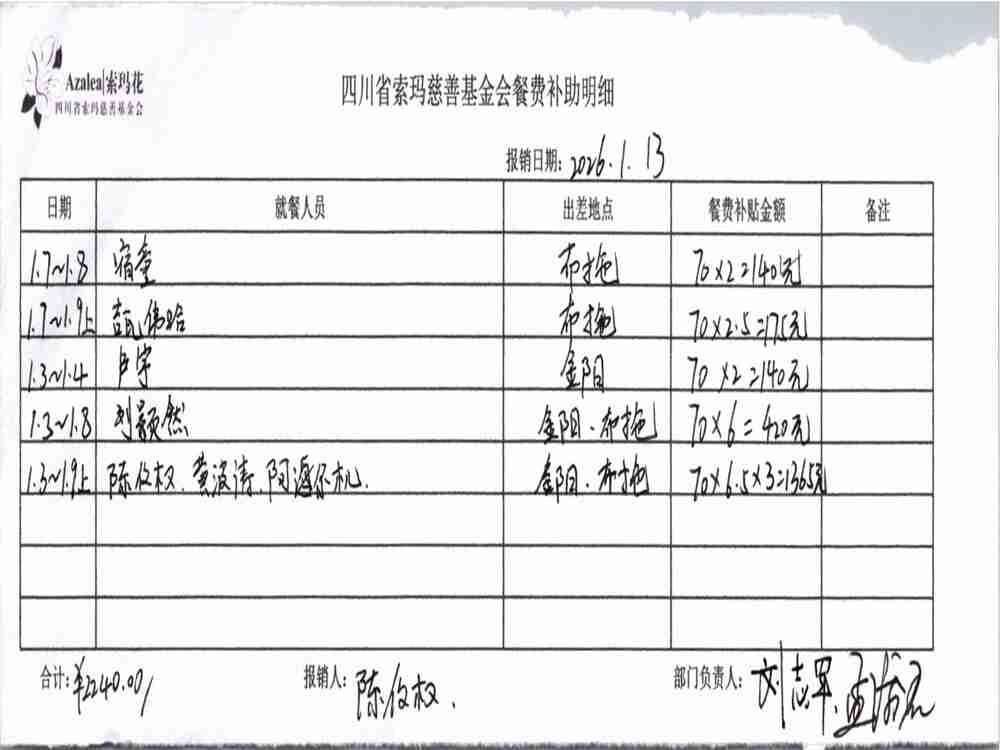 Azalea|索玛花
四川省索玛慈善基金会
四川省索玛慈善基金会餐费补助明细
报销日期：2026.1.13
日期 就餐人员 出差地点 餐费补贴金额 备注
1.7~1.8 宿童 布拖 70×2=140元
1.7~1.9上 布拖 70×2.5=175元
1.3~1.4 卢宇 金阳 70×2=140元
1.3~1.8 刘颖然 金阳、布拖 70×6=420元
1.3~1.9上 陈仪权、黄波涛、阿 机. 金阳、布拖 70×6.5×3=1365元
合计：¥2240.00/ 报销人：陈仪权. 部门负责人：刘志军、